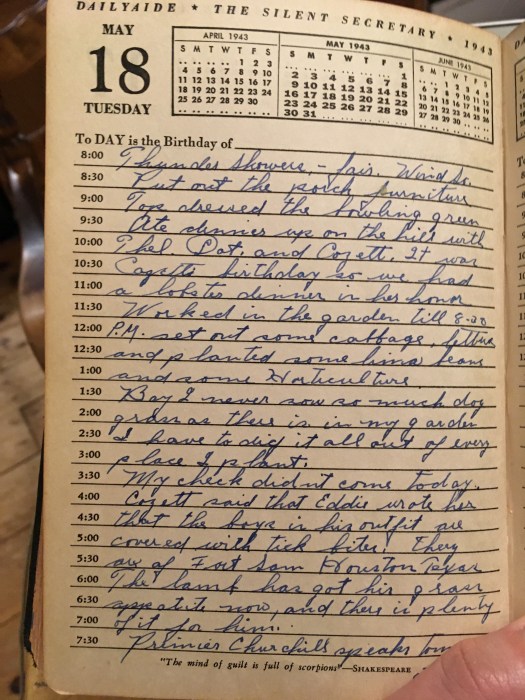 DAILYAIDE ★ THE SILENT SECRETARY ★ 1943
MAY
18
TUESDAY
APRIL 1943
S M T W T F S
. . . . . . . . 1 2 3
4 5 6 7 8 9 10
11 12 13 14 15 16 17
18 19 20 21 22 23 24
25 26 27 28 29 30
MAY 1943
S M T W T F S
. . . . . . . . . . . . 1
2 3 4 5 6 7 8
9 10 11 12 13 14 15
16 17 18 19 20 21 22
23 24 25 26 27 28 29
30 31
JUNE 1943
S M T W T F S
. . . . 1 2 3 4 5
6 7 8 9 10 11 12
13 14 15 16 17 18 19
20 21 22 23 24 25 26
27 28 29 30
To DAY is the Birthday of
8:00 Thunder showers, - fair. Wind So.
8:30 Put out the porch furniture
9:00 Top dressed the bowling green
9:30 Ate dinner up on the hill with
10:00 Phel. Dot. and Cozett. It was
10:30 Cozetts birthday so we had
11:00 a lobster dinner in her honor
11:30 Worked in the garden till 8-30
12:00 P.M. set out some cabbage, lettuce
12:30 and planted some lima beans
1:00 and some Horticulture
1:30 Boy I never saw so much dog
2:00 grass as there is in my garden
2:30 I have to dig it all out of every
3:00 place I plant.
3:30 My check didnt come today.
4:00 Cozett said that Eddie wrote her
4:30 that the boys in his outfit are
5:00 covered with tick bites. They
5:30 are at Fort Sam Houston Texas
6:00 The lamb has got his grass
6:30 appetite now, and there is plenty
7:00 of it for him.
7:30 Primier Churchill speaks tom
"The mind of guilt is full of scorpions"—SHAKESPEARE